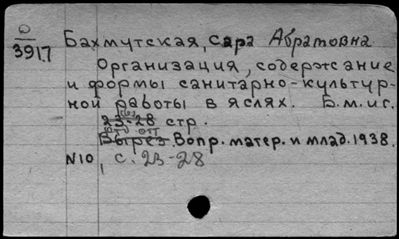 О
3917
Бахмутская, Сара Абрамовна
Организация, содержание
и формы санитарно-культур-
ной работы в яслях. Б.м.и г.
23-28 стр.
Вырез. Вопр. матер. и млад. 1938.
N10, с. 23-28